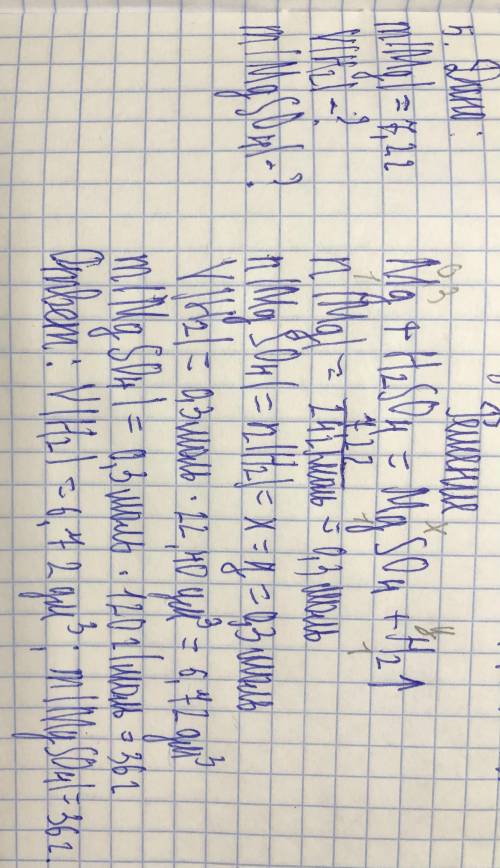 5. Дано:
m(Mg) = 7,2г
V(H2) = ?
m(MgSO4) - ?
Решение
0,3 x y
Mg + H2SO4 = MgSO4 + H2↑
1 1 1
n(Mg) = 7,2г / 24г/моль = 0,3 моль
n(MgSO4) = n(H2) = x = y = 0,3 моль
V(H2) = 0,3 моль · 22,40 дм³ = 6,72 дм³
m(MgSO4) = 0,3 моль · 120г/моль = 36г
Ответ: V(H2) = 6,72 дм³; m(MgSO4) = 36г.